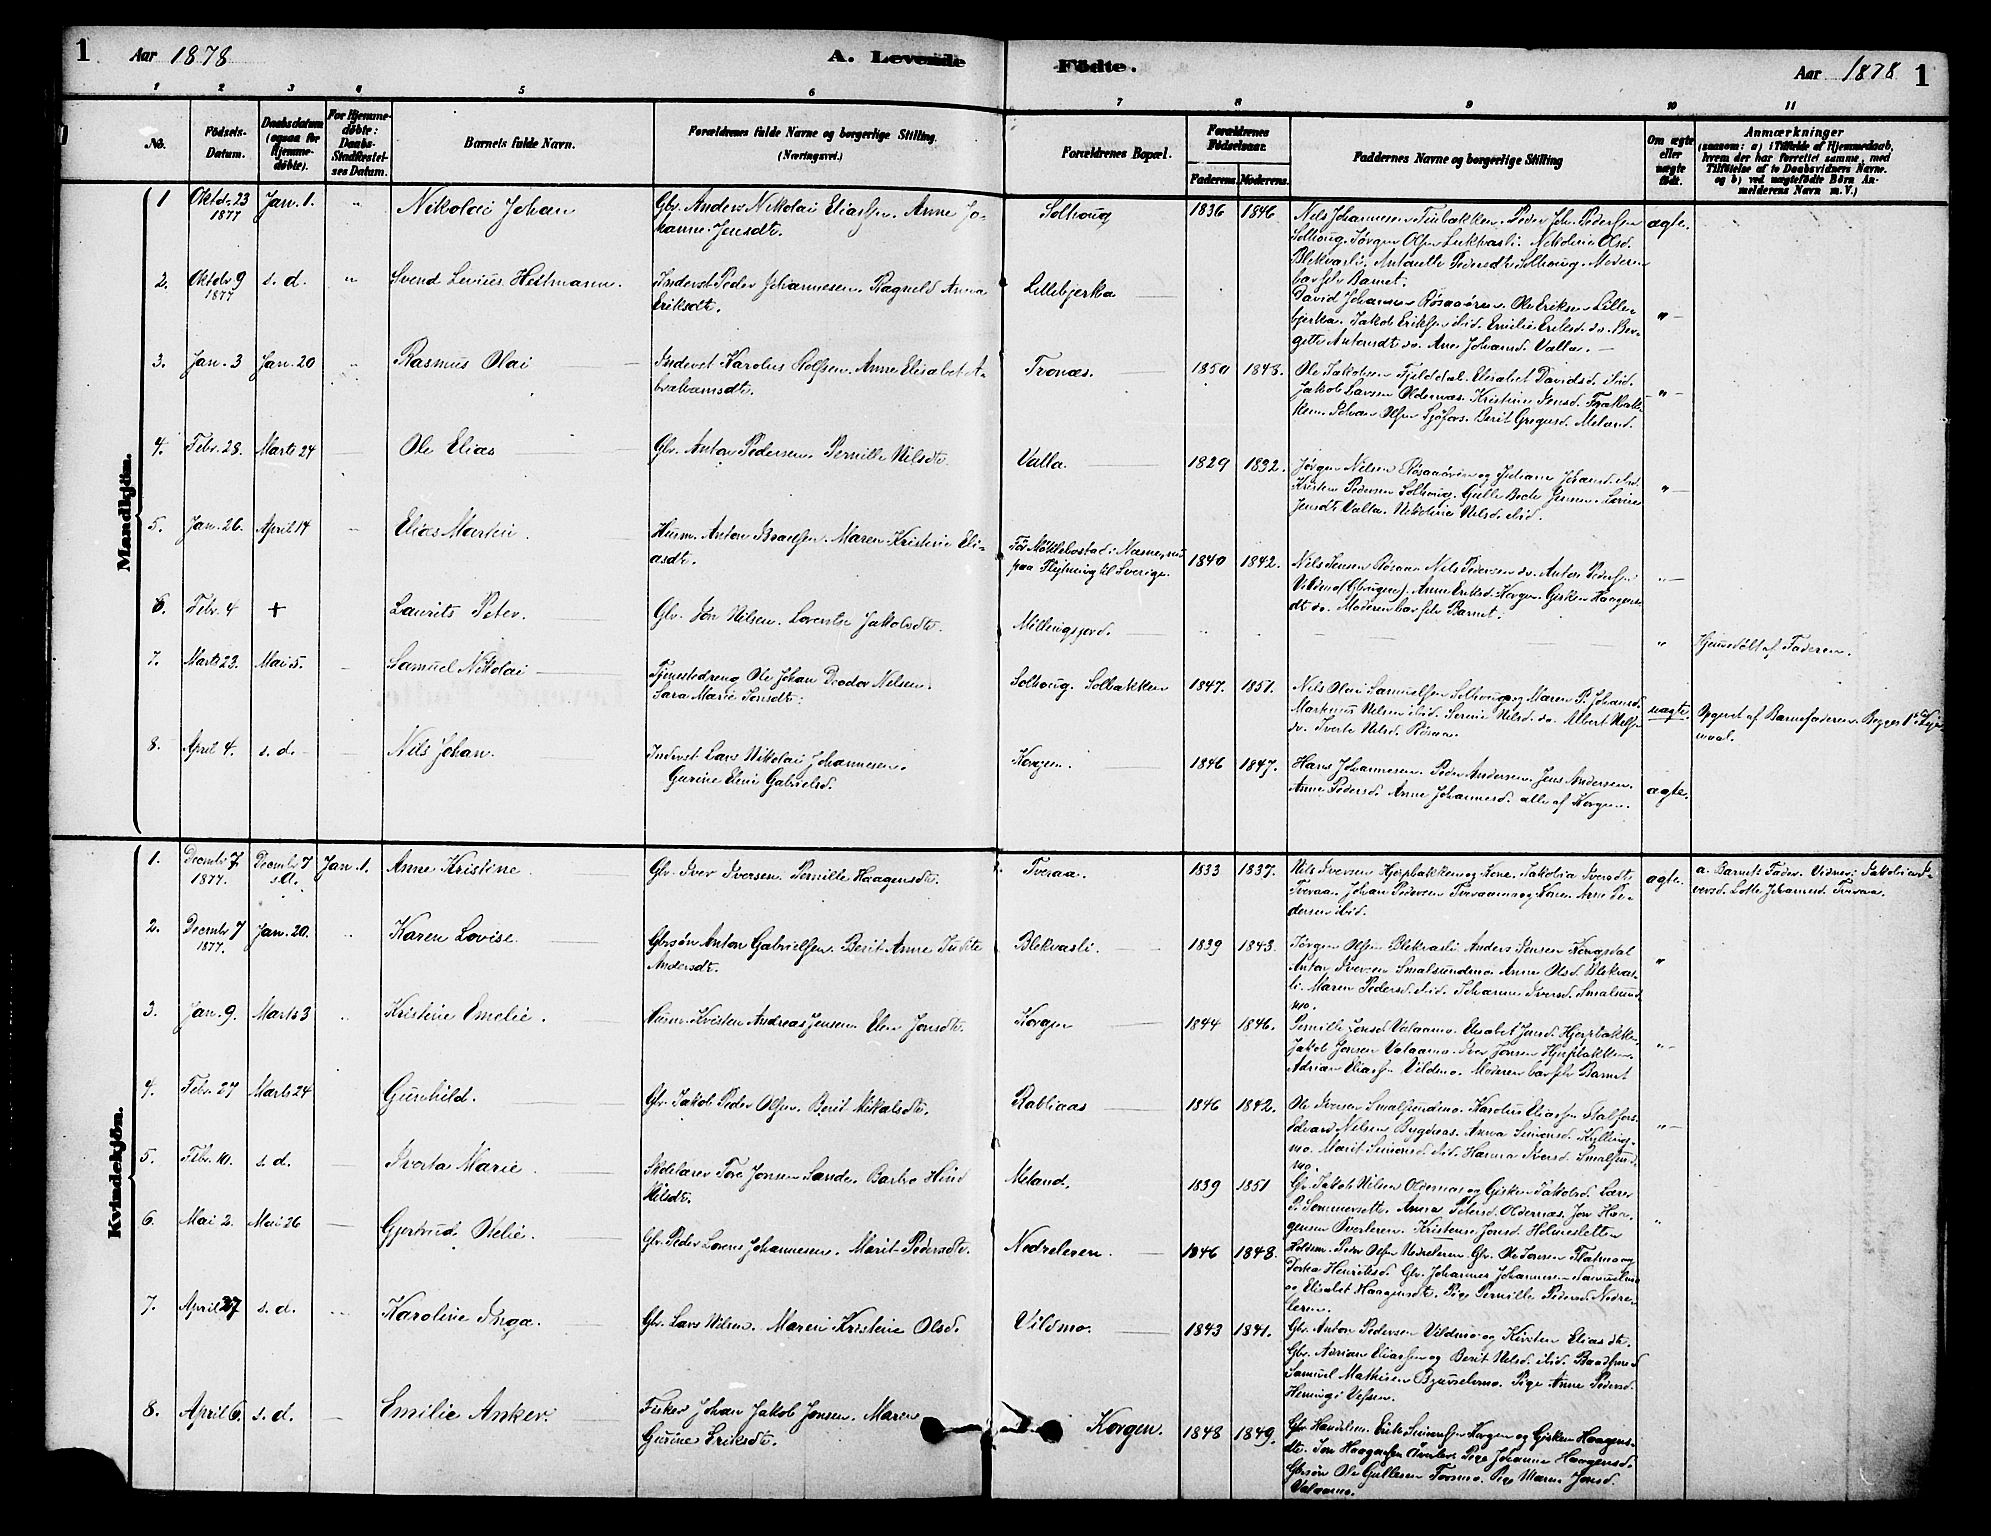 1 Aar 1878 A. Levende Fødte. Aar 1878 1
1 2 3 4 5 6 7 8 9 10 11
No. Fødsels-Datum. Daabsdatum (ogsaa for Hjemmedøbte). For Hjemmedøbte: Daabs-Stadfæstelses Datum. Barnets fulde Navn. Forældrenes fulde Navne og borgerlige Stilling (Næringsvei.) Forældrenes Bopæl. Forældrenes Fødselsaar. Faderens. Moderens. Faddernes Navne og borgerlige Stilling Om ægte eller uægte født. Anmærkninger (saasom: a) i Tilfælde af Hjemmedaab, hvem der har forrettet samme, med Tilføielse af to Daabsvidners Navne. og b) ved uægtefødte Børn Anmelderens Navn m. V.)
Mandkjøn.
1 Oktbr. 23 1877 Jan. 1. " Nikolai Johan Gbr. Anders Nikolai Eliassen. Anne Jo-
hanne Jensdt. Solhoug 1836 1846 Nils Johannesen Peder Joh. Pedersen
Solhoug. Jørgen Olsen Olsd.
Blekvasli. Antonette Pedersdt. Solhoug. Moderen
bar selv Barnet. ægte.
2. Oktobr. 9 1877 s. d. " Svend Levius Hestmann. Inderst Peder Johannesen. Ragnild Anna
Eriksdt. Lillebjerka
David Johansen Røsaaøren. Ole Eriksen Lille-
bjerka. Jakob Eriksen ibid. Emilie Eriksd. do. Ber-
gette Antonsdt. do. Ane Johansd. Valla. "
3. Jan. 3 Jan. 20 " Rasmus Olai Inderst Karolus Rolfsen. Anne Elisabet A-
brahamsdt. Tronæs. 1850 1848. Ole Jakobsen Fjelddal. Elisabet Davidsd. ibid.
Jakob Larsen Oldernæs. Kristine Jensd.
Johan Olsen Sjøfors. Berit Gregusd. Meland. "
4. Febr. 28. Marts 24 Ole Elias Gbr. Anton Pedersen. Pernille Nilsdt. Valla. 1829 1832. Jørgen Nilsen Røsaaøren og Juliane Johansd. ibid.
Kristen Pedersen Solhoug.
Jensdt. Valla. Nikoline Nilsd. ibid. "
5. Jan. 26. April 14 Elias Martin Husm. Anton Maren Kristine Eli-
asdt. Før Møkkelbostad i Næsne, nu
paa Flytning til Sverige. 1840 1842. Nils Jensen Røsaa. Nils Pedersen do. Anton Pedersen
Vildmo (Gbrugere). Anne Eriksd. Korgen. Gisken Haagens-
dt. do. Moderen bar selv Barnet. "
6. Febr. 4 + Laurits Peter. Gbr. Jon Nilsen. Lorentse Jakobsdt. Millingsjord. " Hjemmedøbt af Faderen.
7. Marts 23. Mai 5. Samuel Nikolai Tjenestedreng Ole Johan Deodor Nilsen.
Sara Marie Jonsdt. Solhoug. Solbakken 1847. 1851. Nils Olai Samuelsen Solhoug og Maren P. Johansd.
Martinus Nilsen ibid. Serine Nilsd. do. Albert Nilsen
do. Iverte Nilsd. Røsaa. uægte. Opgivet af Barnefaderen. Begges 1ste Leier-
maal.
8. April 4. s. d. Nils Johan Inderst Lars Nikolai Johannesen.
Gurine Elen Gabrielsd. Korgen. 1846 1847. Hans Johannesen. Peder Andersen. Jens Andersen.
Anne Pedersd. Anne Johannesd. alle af Korgen. ægte.
Kvindekjøn.
1. Decembr. 7. 1877. Decembr 7 s.A. Jan. 1. Anne Kristine Gbr. Iver Iversen. Pernille Haagensdt. Tveraa. 1833 1837. Nils Iversen Hjerpbakken og Kone. Jakobia Iversdt.
Tveraa. Johan Pedersen Tveraamo og Karen Anne Pe-
dersen ibid. ægte. a. Barnets Fader. Vidner: Jakobia I-
versd. Lotte Johannesd. Tveraa.
2. Decembr 7 1877. Jan. 20. Karen Lovise. Gbrsøn Anton Gabrielsen. Berit Anne
Andersdt. Blekvasli. 1839 1843. Jørgen Olsen Blekvasli. Anders Jensen Kongsdal
Anton Iversen Smalsundmo. Anne Olsd. Blekvas-
li. Maren Pedersd. ibid. Johanne Iversd. Smalsund-
mo. "
3. Jan. 9. Marts 3 Kristine Emelie. Husm. Kristen Andreas Jensen. Elen Jonsdt. Korgen 1844 1846. Pernille Jonsd. Valaamo. Elisabet Jonsd. Hjerpbakken
Jakob Jonsen Valaamo. Iver Jonsen Hjerpbakken.
Adrian Eliassen Vildmo. Moderen bar selv Barnet "
4. Febr. 27 Marts 24 Gunhild. Gbr. Jakob Peder Olsen. Berit Mikalsdt. Rabliaas 1846 1842. Ole Iversen Smalsundmo. Karolus Eliassen Stalfors.
Edvard Nilsen Bygdeaas. Anna Simonsd. Kylling-
mo. Marit Simonsd. ibid. Hanna Iversd. Smalsund-
mo. "
5. Febr. 10. s. d. Iverta Marie. Skolelærer Tore Jonsen Sande. Barbro Hind
Nilsdt. Meland. 1839 1851 Gbr. Jakob Nilsen Oldernæs og Gisken Jakobsd. Lærer
P. Sommersett. Anna Petersd. Oldernæs. Jon Haa-
gensen Kristense Jonsd. Holmesletten "
6. Mai 2. Mai 26 Gjertrud Gbr. Peder Lorens Johannesen. Marit Pedersdt. Nedreleren. 1846 1848. Peder Olsen Nedreleren. Gbr. Ole Jonsen Flatmo og
Dorka Henriksd. Gbr. Johannes Johannesen Samuelmo
og Elisabet Haagensdt. Pige Pernille Pedersd. Nedre-
leren.
7. April 27 s. d. Karoline Inga. Gbr. Lars Nilsen. Maren Kristine Olsd. Vildmo. 1843 1841. Gbr. Anton Pedersen Vildmo og Kirsten Eliasdt.
Gbr. Adrian Eliassen og Berit Nilsd. ibid.
Samuel Mathisen Pige Anne Pedersd.
8. April 6. s. d. Emilie Anker. Fisker Johan Jakob Jonsen. Maren
Gurine Eriksdt. Korgen. 1848 1849. Gbr. Korgen og Gisken Haagens-
dt. Jon Haagensen Pige Johanne Haagensd.
Gbrsøn Ole Gullesen Forsmo. Pige Maren Jonsd.
Valaamo.